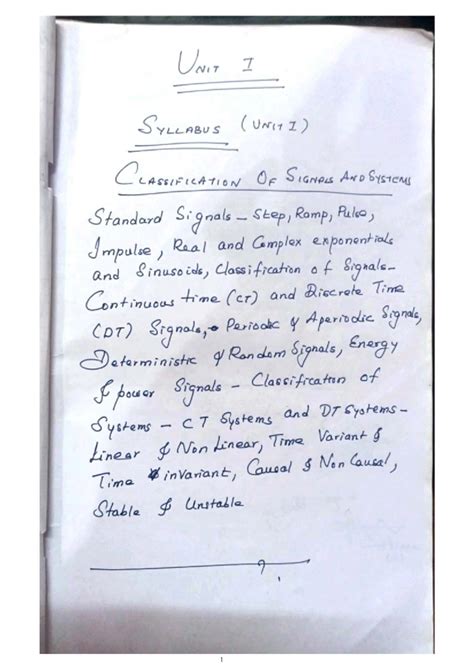 UNIT I
SYLLABUS (UNIT I)
CLASSIFICATION OF SIGNALS AND SYSTEMS
Standard Signals - Step, Ramp, Pulse,
Impulse, Real and Complex exponentials
and Sinusoids, Classification of Signals-
Continuous time (CT) and Discrete Time
(DT) Signals, Periodic & Aperiodic Signals,
Deterministic & Random Signals, Energy
& power Signals - Classification of
Systems - CT Systems and DT Systems-
Linear & Non Linear, Time Variant &
Time invariant, Causal & Non Causal,
Stable & Unstable
1